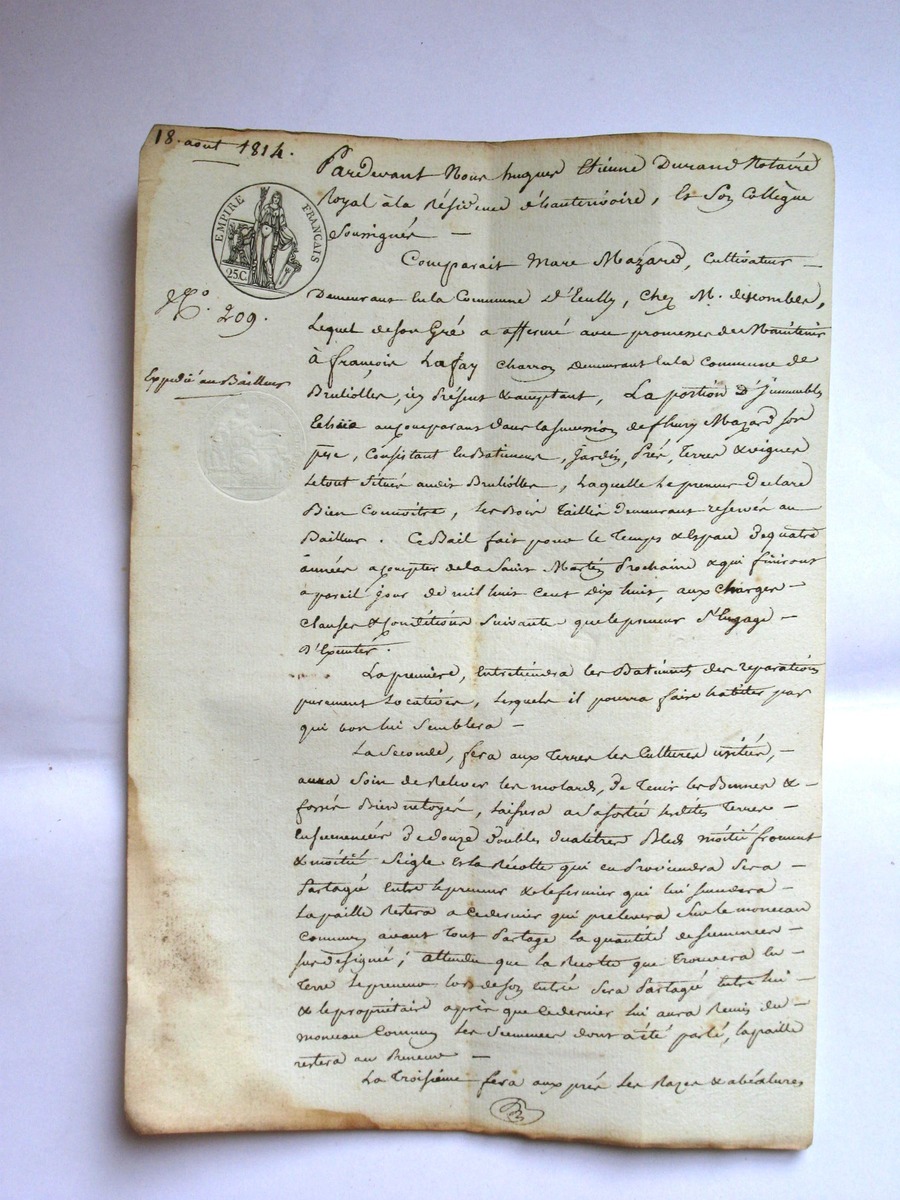 18. aout 1814.
EMPIRE FRANCAIS
25.C.
No. 209.
Expedié au Bailleur
Pardevant Nous hugues Etienne Durand Notaire
Royal à la Résidence d'hauterivoire, & Son Collègue
Soussignés —
Comparait Marc Mazard, Cultivateur —
Demeurant en la Commune D'Eculy, chez M.
Lequel de son Gré a affermé avec promesse de Maintenir
à françois Lafay Charron Demeurant en la Commune de
Brullioles, ici Présent & acceptant, La portion D'Immeubles
échue au comparant dans la succession de fleury Mazard son
père, Consistant en Batiments, Jardin, Prés, Terres & vignes
Le tout Situé audit Brullioles, Laquelle le preneur Declare
Bien Connoitre, Les Bois Taillis demeurant reservés au
Bailleur. Ce Bail fait pour le Temps & Espace de quatre
années a compter de la Saint Martin Prochaine & qui finiront
à pareil jour de mil huit cent dix huit, aux charges —
clauses & Conditions Suivante que le preneur S'Engage —
D'Executer.
La premiere, Entretiendra les Batiments des reparations
purement Locatives, Lesquels il pourra faire habiter par
qui bon lui Semblera —
La Seconde, fera aux Terres les Cultures usitées, —
aura Soin de Relever les molards, De Tenir les &—
fossés Bien netoyés, Laissera a Sa Sortie lesdites Terres —
Ensemencées De douze Doubles Decalitres Bled moitié froment
& moitié Seigle & la Récolte qui en Proviendra Sera —
Partagée Entre le preneur & le fermier qui lui succedera —
La paille Restera a ce dernier qui prelevera Sur le monceau
Commun avant Tout Partage la quantité de Semences —
Sus Designée; attendu que la Recolte que Trouvera en —
Terre le preneur lors de Son Entrée Sera Partagée Entre lui
& le proprietaire après que ce dernier lui aura Remis du —
monceau Commun les Semences dont a été parlé, la paille
restera au Preneur —
La Troisieme fera aux prés les Razes &